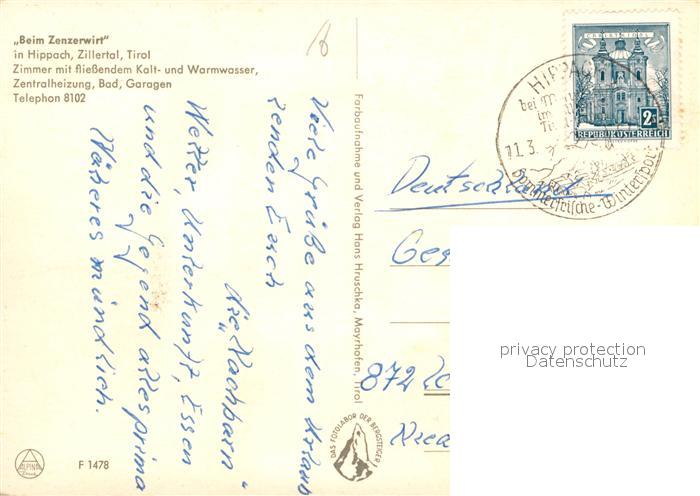 „Beim Zenzerwirt"
in Hippach, Zillertal, Tirol
Zimmer mit fließendem Kalt- und Warmwasser,
Zentralheizung, Bad, Garagen
Telephon 8102
Viele Grüße aus dem Urlaub
senden Euch
die „Nachbarn"
Wetter, Unterkunft, Essen
und die Gegend alles prima
Näheres mündlich.
Farbaufnahme und Verlag Hans Hruschka, Mayrhofen, Tirol
CHRISTKINDL
2S
REPUBLIK ÖSTERREICH
HIPPACH
bei
im
11.3.
Sommerfrische-Wintersport
Deutschland
872
privacy protection
Datenschutz
DAS FOTOLABOR DER BERGSTEIGER
ALPINA
Druck
F 1478